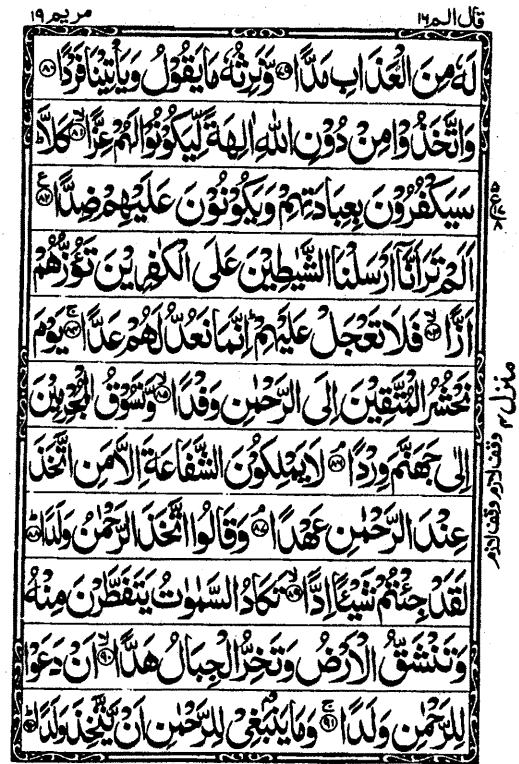 قال الم ١٦ مريم ١٩
لَهٗ مِنَ الْعَذَابِ مَدًّا ۙ‏﴿۷۹﴾ وَّنَرِثُهٗ مَا يَقُوْلُ وَيَاْتِيْنَا فَرْدًا ﴿۸۰﴾
وَاتَّخَذُوْا مِنْ دُوْنِ اللّٰهِ اٰلِهَةً لِّيَكُوْنُوْا لَهُمْ عِزًّا ۙ﴿۸۱﴾ كَلَّا ؕ
سَيَكْفُرُوْنَ بِعِبَادَتِهِمْ وَيَكُوْنُوْنَ عَلَيْهِمْ ضِدًّا ﴿۸۲﴾ ع
اَلَمْ تَرَ اَنَّاۤ اَرْسَلْنَا الشَّيٰطِيْنَ عَلَى الْكٰفِرِيْنَ تَؤُزُّهُمْ
اَزًّا ۙ﴿۸۳﴾ فَلَا تَعْجَلْ عَلَيْهِمْ ؕ اِنَّمَا نَعُدُّ لَهُمْ عَدًّا ۚ﴿۸۴﴾ يَوْمَ
نَحْشُرُ الْمُتَّقِيْنَ اِلَى الرَّحْمٰنِ وَفْدًا ۙ﴿۸۵﴾ وَّنَسُوْقُ الْمُجْرِمِيْنَ
اِلٰى جَهَنَّمَ وِرْدًا ۘ﴿۸۶﴾ لَا يَمْلِكُوْنَ الشَّفَاعَةَ اِلَّا مَنِ اتَّخَذَ
عِنْدَ الرَّحْمٰنِ عَهْدًا ۘ﴿۸۷﴾ وَقَالُوا اتَّخَذَ الرَّحْمٰنُ وَلَدًا ؕ﴿۸۸﴾
لَقَدْ جِئْتُمْ شَيْئًا اِدًّا ۙ﴿۸۹﴾ تَكَادُ السَّمٰوٰتُ يَتَفَطَّرْنَ مِنْهُ
وَتَنْشَقُّ الْاَرْضُ وَتَخِرُّ الْجِبَالُ هَدًّا ۙ﴿۹۰﴾ اَنْ دَعَوْا
لِلرَّحْمٰنِ وَلَدًا ۚ﴿۹۱﴾ وَمَا يَنْۢبَغِيْ لِلرَّحْمٰنِ اَنْ يَّتَّخِذَ وَلَدًا ؕ﴿۹۲﴾
منزل ٤
وقف لازم وقف لازم